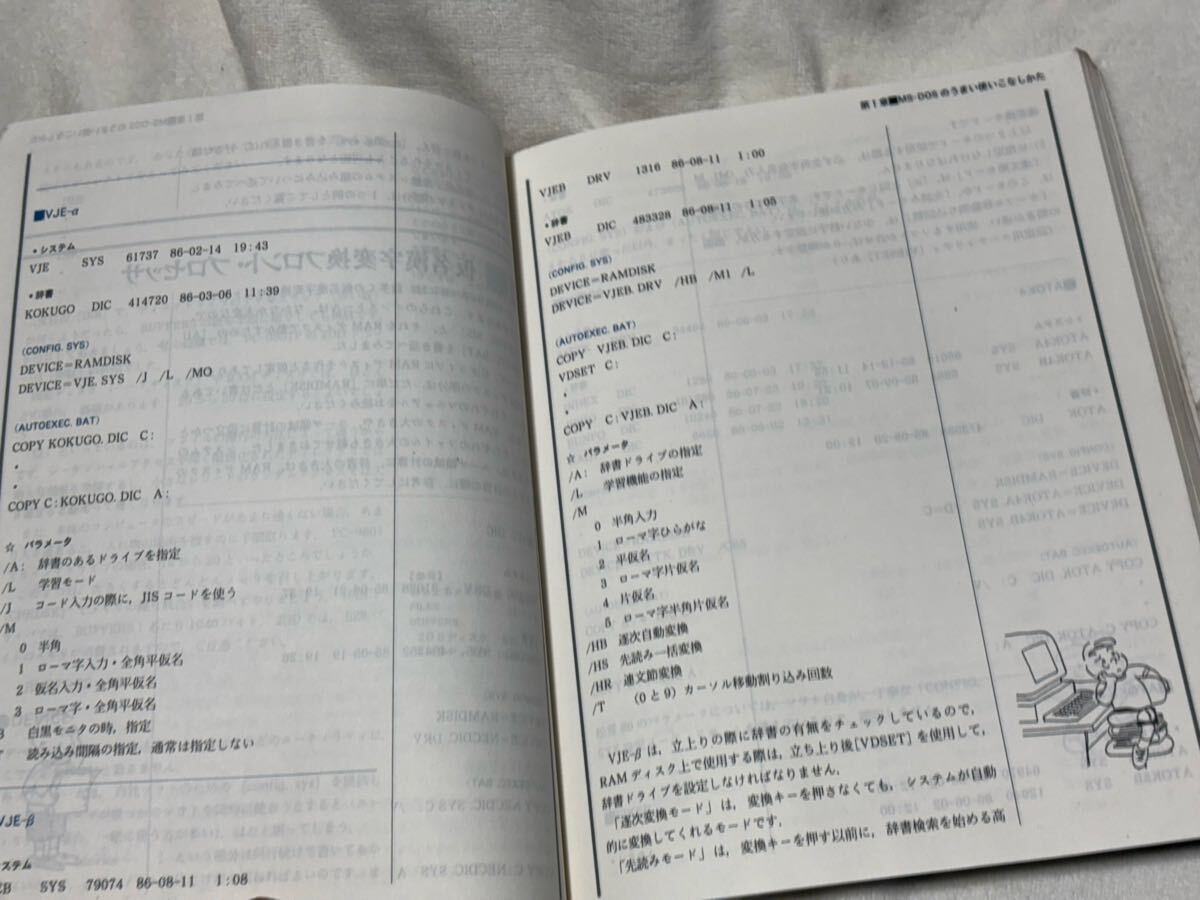 ■VJE-α
・システム
VJE SYS 61737 86-02-14 19:43
・辞書
KOKUGO DIC 414720 86-03-06 11:39
(CONFIG. SYS)
DEVICE=RAMDISK
DEVICE=VJE. SYS /J /L /MO
(AUTOEXEC. BAT)
COPY KOKUGO. DIC C:
・
・
COPY C:KOKUGO. DIC A:
☆ パラメータ
/A: 辞書のあるドライブを指定
/L 学習モード
/J コード入力の際に，JISコードを使う
/M
0 半角
1 ローマ字入力・全角平仮名
2 仮名入力・全角平仮名
3 ローマ字・全角平仮名
白黒モニタの時，指定
読み込み間隔の指定，通常は指定しない
VJE-β
ステム
EB SYS 79074 86-08-11 1:08
第1章■MS-DOSのうまい使いこなしかた
VJEB DRV 1316 86-08-11 1:00
・辞書
VJEB DIC 483328 86-08-11 1:05
(CONFIG. SYS)
DEVICE=RAMDISK
DEVICE=VJEB. DRV /HB /M1 /L
(AUTOEXEC. BAT)
COPY VJEB. DIC C:
VDSET C:
・
・
COPY C:VJEB. DIC A:
☆ パラメータ
/A: 辞書ドライブの指定
/L 学習機能の指定
/M
0 半角入力
1 ローマ字ひらがな
2 平仮名
3 ローマ字片仮名
4 片仮名
5 ローマ字半角片仮名
/HB 逐次自動変換
/HS 先読み一括変換
/HR 連文節変換
/T (0と9) カーソル移動割り込み回数
VJE-βは，立上りの際に辞書の有無をチェックしているので，
RAMディスク上で使用する際は，立ち上り後[VDSET]を使用して，
辞書ドライブを設定しなければなりません．
「逐次変換モード」は，変換キーを押さなくても，システムが自動
的に変換してくれるモードです．
「先読みモード」は，変換キーを押す以前に，辞書検索を始める高